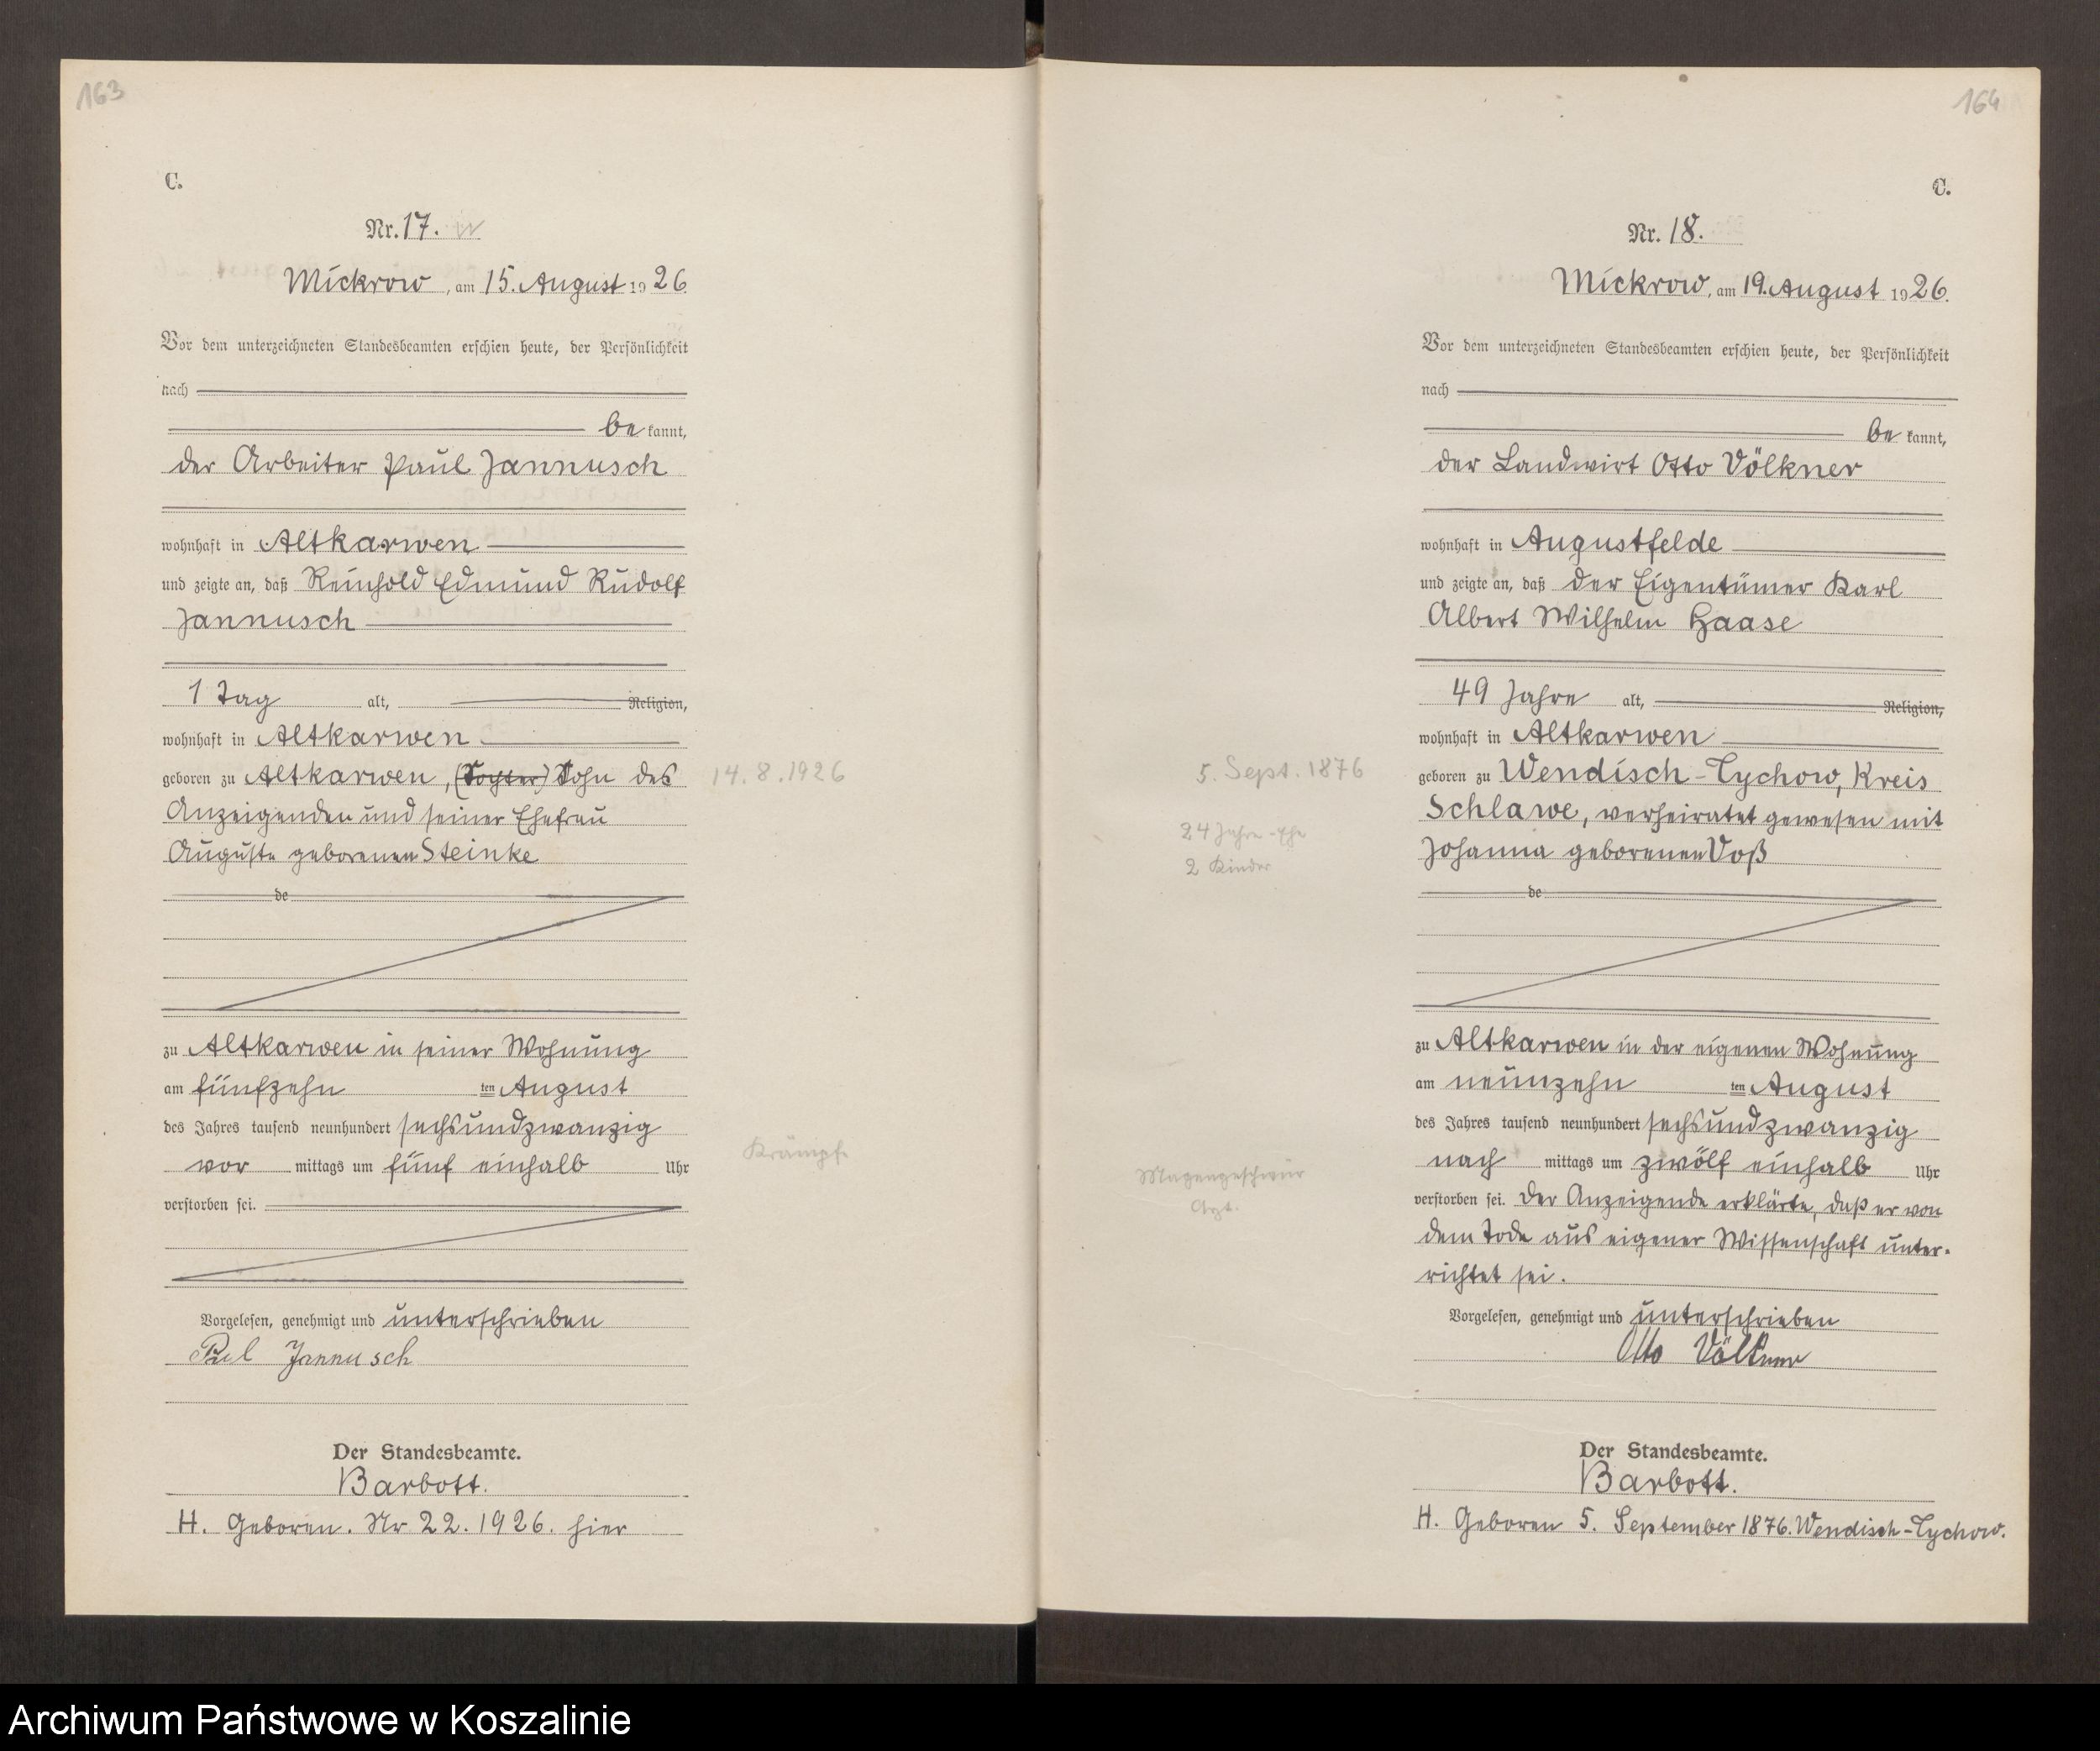 163
C.
Nr. 17.
Mickrow, am 15. August 1926
Vor dem unterzeichneten Standesbeamten erschien heute, der Persönlichkeit
nach
be kannt,
der Arbeiter Paul Jannusch
wohnhaft in Altkarwen
und zeigte an, daß Reinhold Edmund Rudolf
Jannusch
1 Tag alt, Religion,
wohnhaft in Altkarwen
geboren zu Altkarwen, (Tochter) Sohn des
14.8.1926
Anzeigenden und seiner Ehefrau
Auguste geborenen Steinke
de
zu Altkarwen in seiner Wohnung
am fünfzehn ten August
des Jahres tausend neunhundert sechsundzwanzig
Krämpfe
vor mittags um fünf einhalb Uhr
verstorben sei.
Vorgelesen, genehmigt und unterschrieben
Paul Jannusch
Der Standesbeamte.
Barbott.
H. Geboren. Nr 22. 1926. hier
164
C.
Nr. 18.
Mickrow, am 19. August 1926.
Vor dem unterzeichneten Standesbeamten erschien heute, der Persönlichkeit
nach
be kannt,
der Landwirt Otto Völkner
wohnhaft in Augustfelde
und zeigte an, daß der Eigentümer Karl
Albert Wilhelm Haase
49 Jahre alt, Religion,
wohnhaft in Altkarwen
5. Sept. 1876
geboren zu Wendisch-Tychow, Kreis
Schlawe, verheiratet gewesen mit
24 Jahre - Ehe
Johanna geborenen Voß
2 Kinder
de
zu Altkarwen in der eigenen Wohnung
am neunzehn ten August
des Jahres tausend neunhundert sechsundzwanzig
nach mittags um zwölf einhalb Uhr
Magengeschwür
Arzt.
verstorben sei. Der Anzeigende erklärte, daß er von
dem Tode aus eigener Wissenschaft unter-
richtet sei.
Vorgelesen, genehmigt und unterschrieben
Otto Völkner
Der Standesbeamte.
Barbott.
H. Geboren 5. September 1876. Wendisch-Tychow.
Archiwum Państwowe w Koszalinie